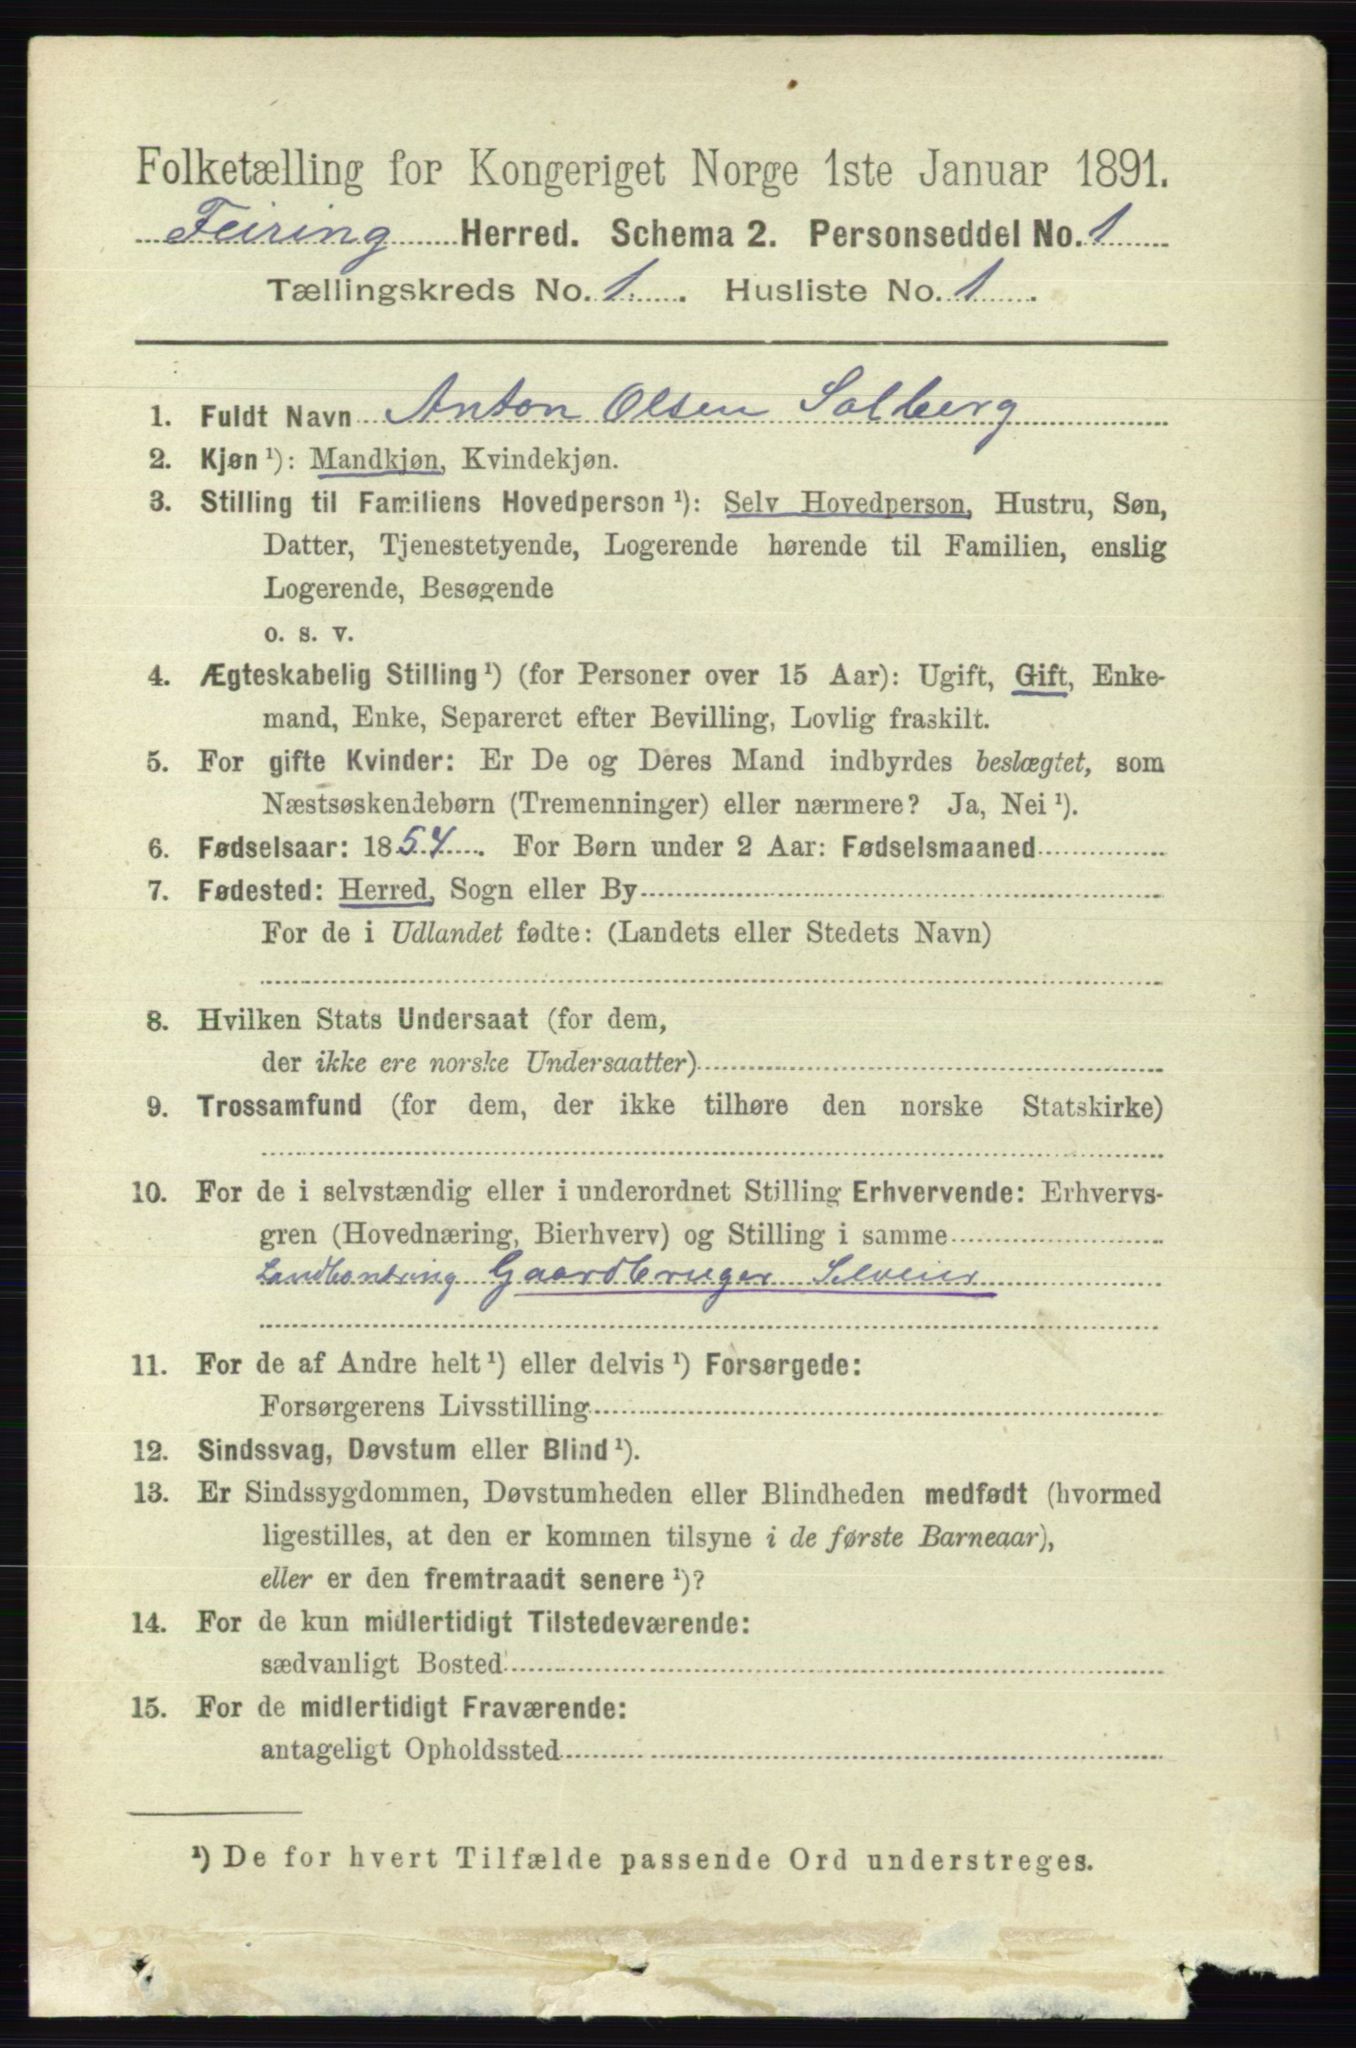 Folketælling for Kongeriget Norge 1ste Januar 1891.
Feiring Herred. Schema 2. Personseddel No. 1
Tællingskreds No. 1. Husliste No. 1.
1. Fuldt Navn Anton Olsen Solberg
2. Kjøn ¹): Mandkjøn, Kvindekjøn.
3. Stilling til Familiens Hovedperson ¹): Selv Hovedperson, Hustru, Søn,
Datter, Tjenestetyende, Logerende hørende til Familien, enslig
Logerende, Besøgende
o. s. v.
4. Ægteskabelig Stilling ¹) (for Personer over 15 Aar): Ugift, Gift, Enke-
mand, Enke, Separeret efter Bevilling, Lovlig fraskilt.
5. For gifte Kvinder: Er De og Deres Mand indbyrdes beslægtet, som
Næstsøskendebørn (Tremenninger) eller nærmere? Ja, Nei ¹).
6. Fødselsaar: 1854. For Børn under 2 Aar: Fødselsmaaned
7. Fødested: Herred, Sogn eller By
For de i Udlandet fødte: (Landets eller Stedets Navn)
8. Hvilken Stats Undersaat (for dem,
der ikke ere norske Undersaatter)
9. Trossamfund (for dem, der ikke tilhøre den norske Statskirke)
10. For de i selvstændig eller i underordnet Stilling Erhvervende: Erhvervs-
gren (Hovednæring, Bierhverv) og Stilling i samme
Gaardbruger Selveier
11. For de af Andre helt ¹) eller delvis ¹) Forsørgede:
Forsørgerens Livsstilling
12. Sindssvag, Døvstum eller Blind ¹).
13. Er Sindssygdommen, Døvstumheden eller Blindheden medfødt (hvormed
ligestilles, at den er kommen tilsyne i de første Barneaar),
eller er den fremtraadt senere ¹)?
14. For de kun midlertidigt Tilstedeværende:
sædvanligt Bosted
15. For de midlertidigt Fraværende:
antageligt Opholdssted
¹) De for hvert Tilfælde passende Ord understreges.